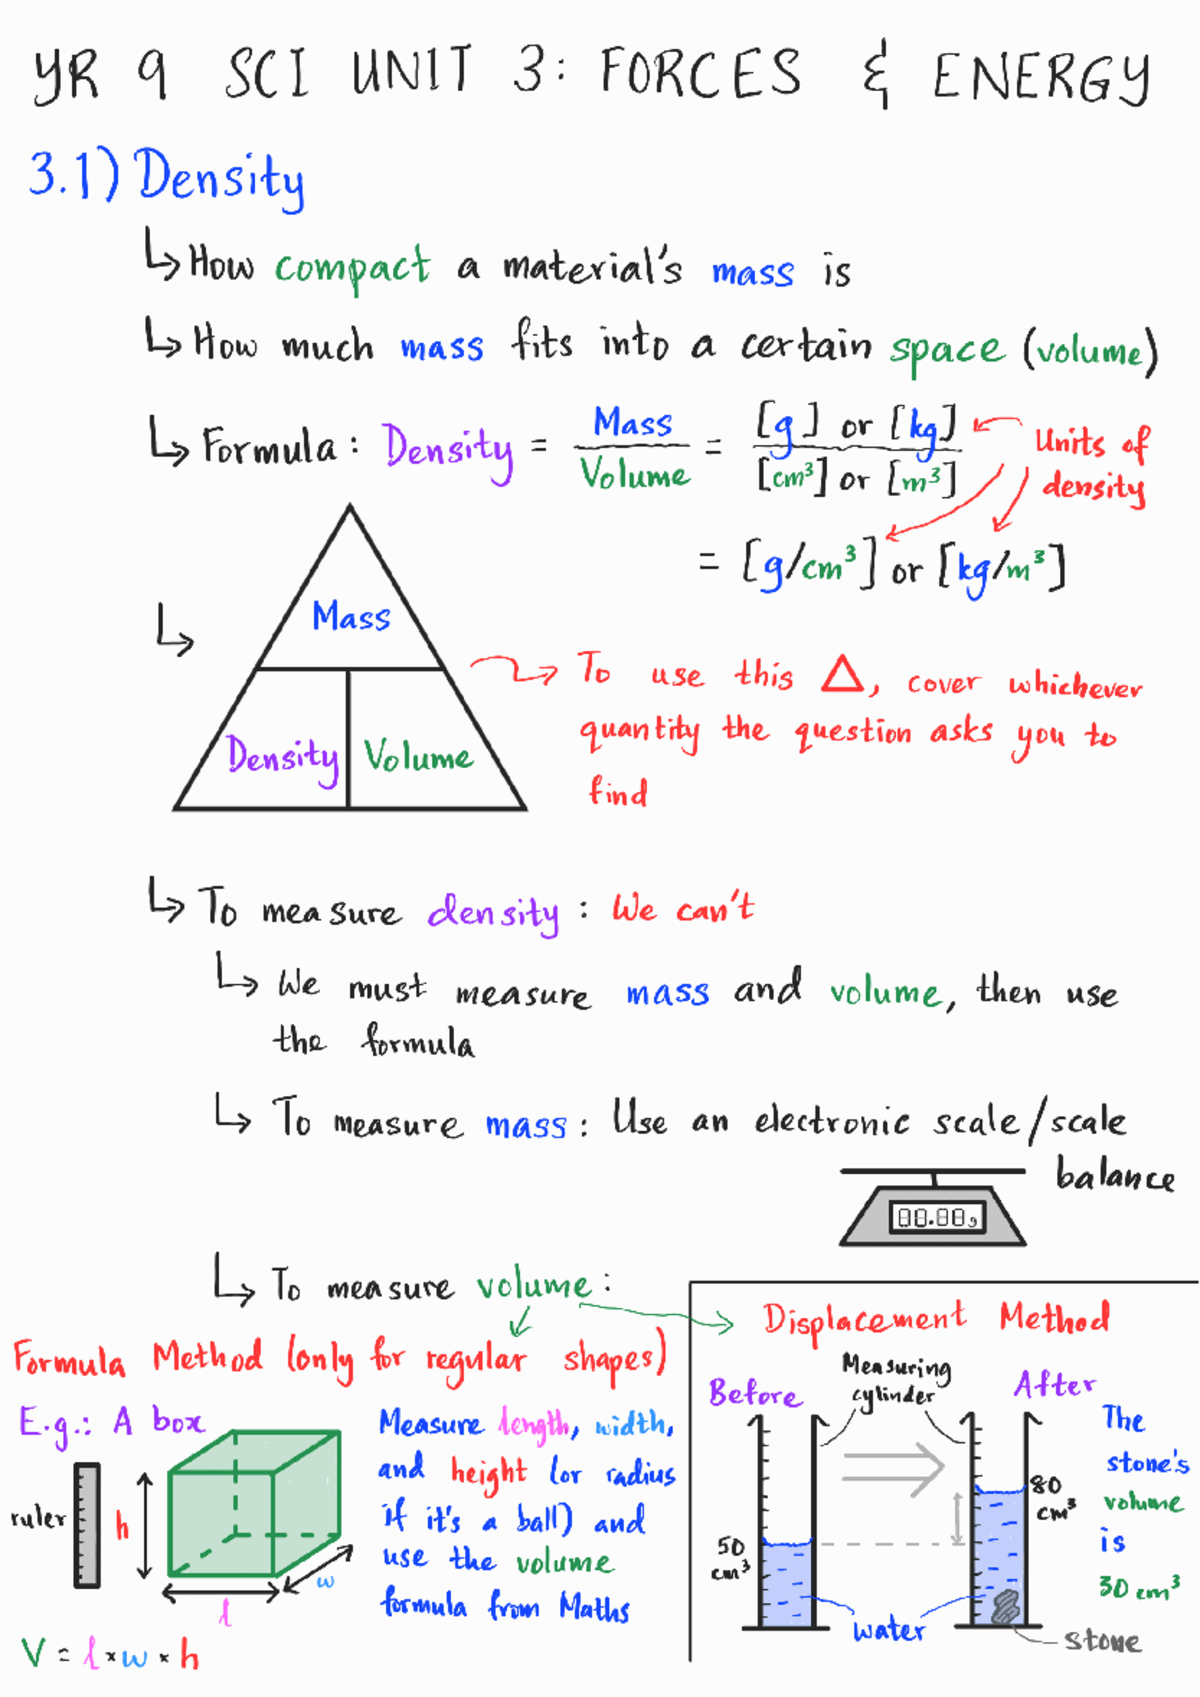 YR 9 SCI UNIT 3: FORCES & ENERGY
3.1) Density
↳ How compact a material's mass is
↳ How much mass fits into a certain space (volume)
↳ Formula: Density = Mass / Volume = [g] or [kg] / [cm³] or [m³]
Units of density
= [g/cm³] or [kg/m³]
↳
Mass
Density
Volume
To use this △, cover whichever
quantity the question asks you to
find
↳ To measure density: We can't
↳ We must measure mass and volume, then use
the formula
↳ To measure mass: Use an electronic scale/scale
balance
88.88g
↳ To measure volume:
Formula Method (only for regular shapes)
E.g.: A box
ruler
h
w
l
V = l × w × h
Measure length, width,
and height (or radius
if it's a ball) and
use the volume
formula from Maths
Displacement Method
Before
Measuring
cylinder
After
50
cm³
80
cm³
water
stone
The
stone's
volume
is
30 cm³